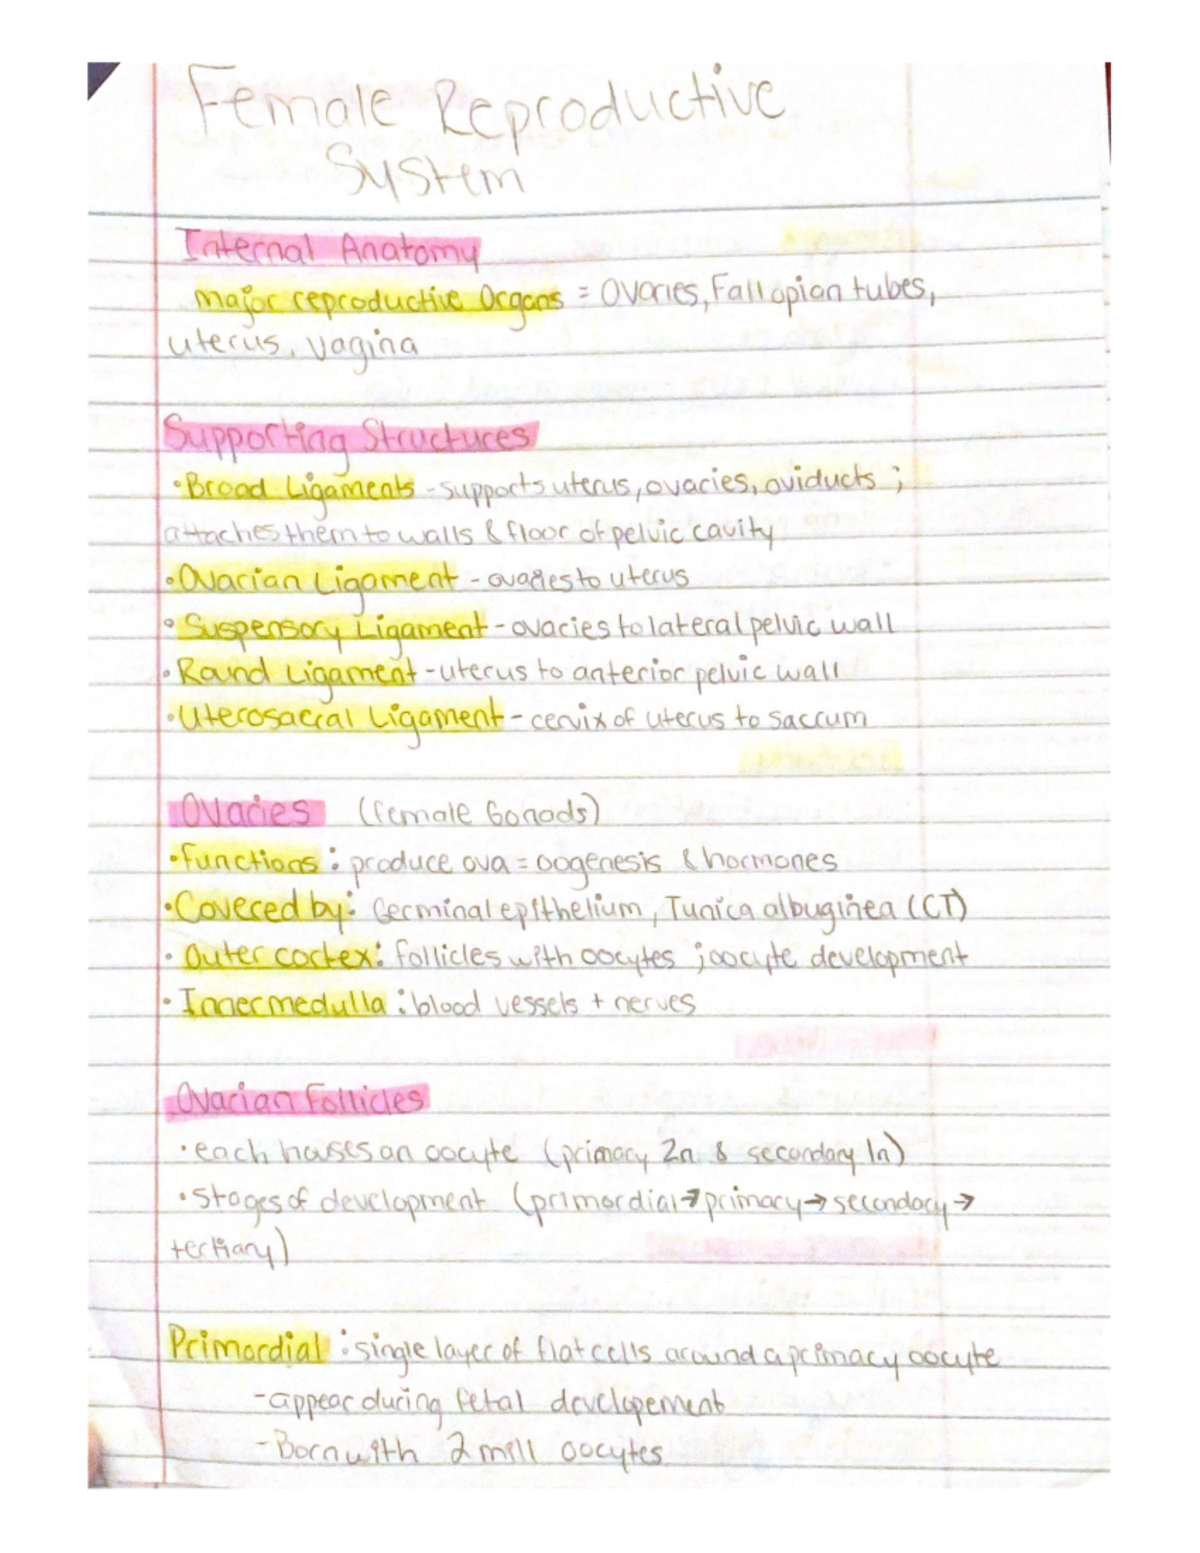 Female Reproductive
System
Internal Anatomy
major reproductive Organs = Ovaries, Fallopian tubes,
uterus, vagina
Supporting Structures
• Broad Ligaments - supports uterus, ovaries, oviducts ;
attaches them to walls & floor of pelvic cavity
• Ovarian Ligament - ovaries to uterus
• Suspensory Ligament - ovaries to lateral pelvic wall
• Round Ligament - uterus to anterior pelvic wall
• Uterosacral Ligament - cervix of uterus to sacrum
Ovaries (female Gonads)
• functions : produce ova = oogenesis & hormones
• Covered by : Germinal epithelium, Tunica albuginea (CT)
• Outer cortex : follicles with oocytes ; oocyte development
• Inner medulla : blood vessels + nerves
Ovarian Follicles
• each houses an oocyte (primary 2n & secondary 1n)
• Stages of development (primordial → primary → secondary →
tertiary)
Primordial : single layer of flat cells around a primary oocyte
- appear during fetal developement
- Born with 2 mill oocytes